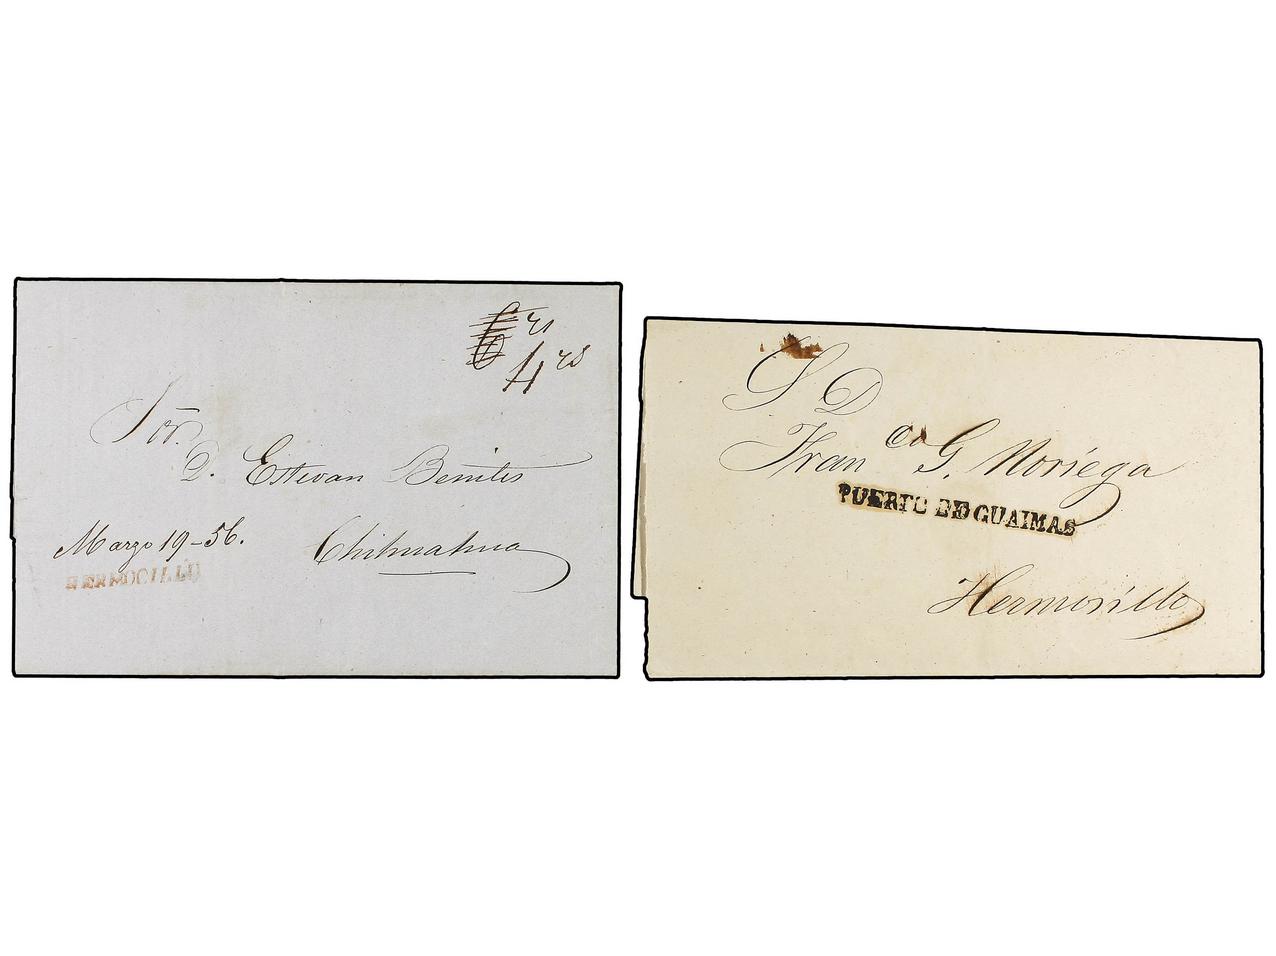 4 rs
Sõr.
D. Estevan Benites
Marzo 19-56.
Chihuahua
HERMOCILLO
S D
Fran co G. Noriega
PUERTO DE GUAIMAS
Hermosillo